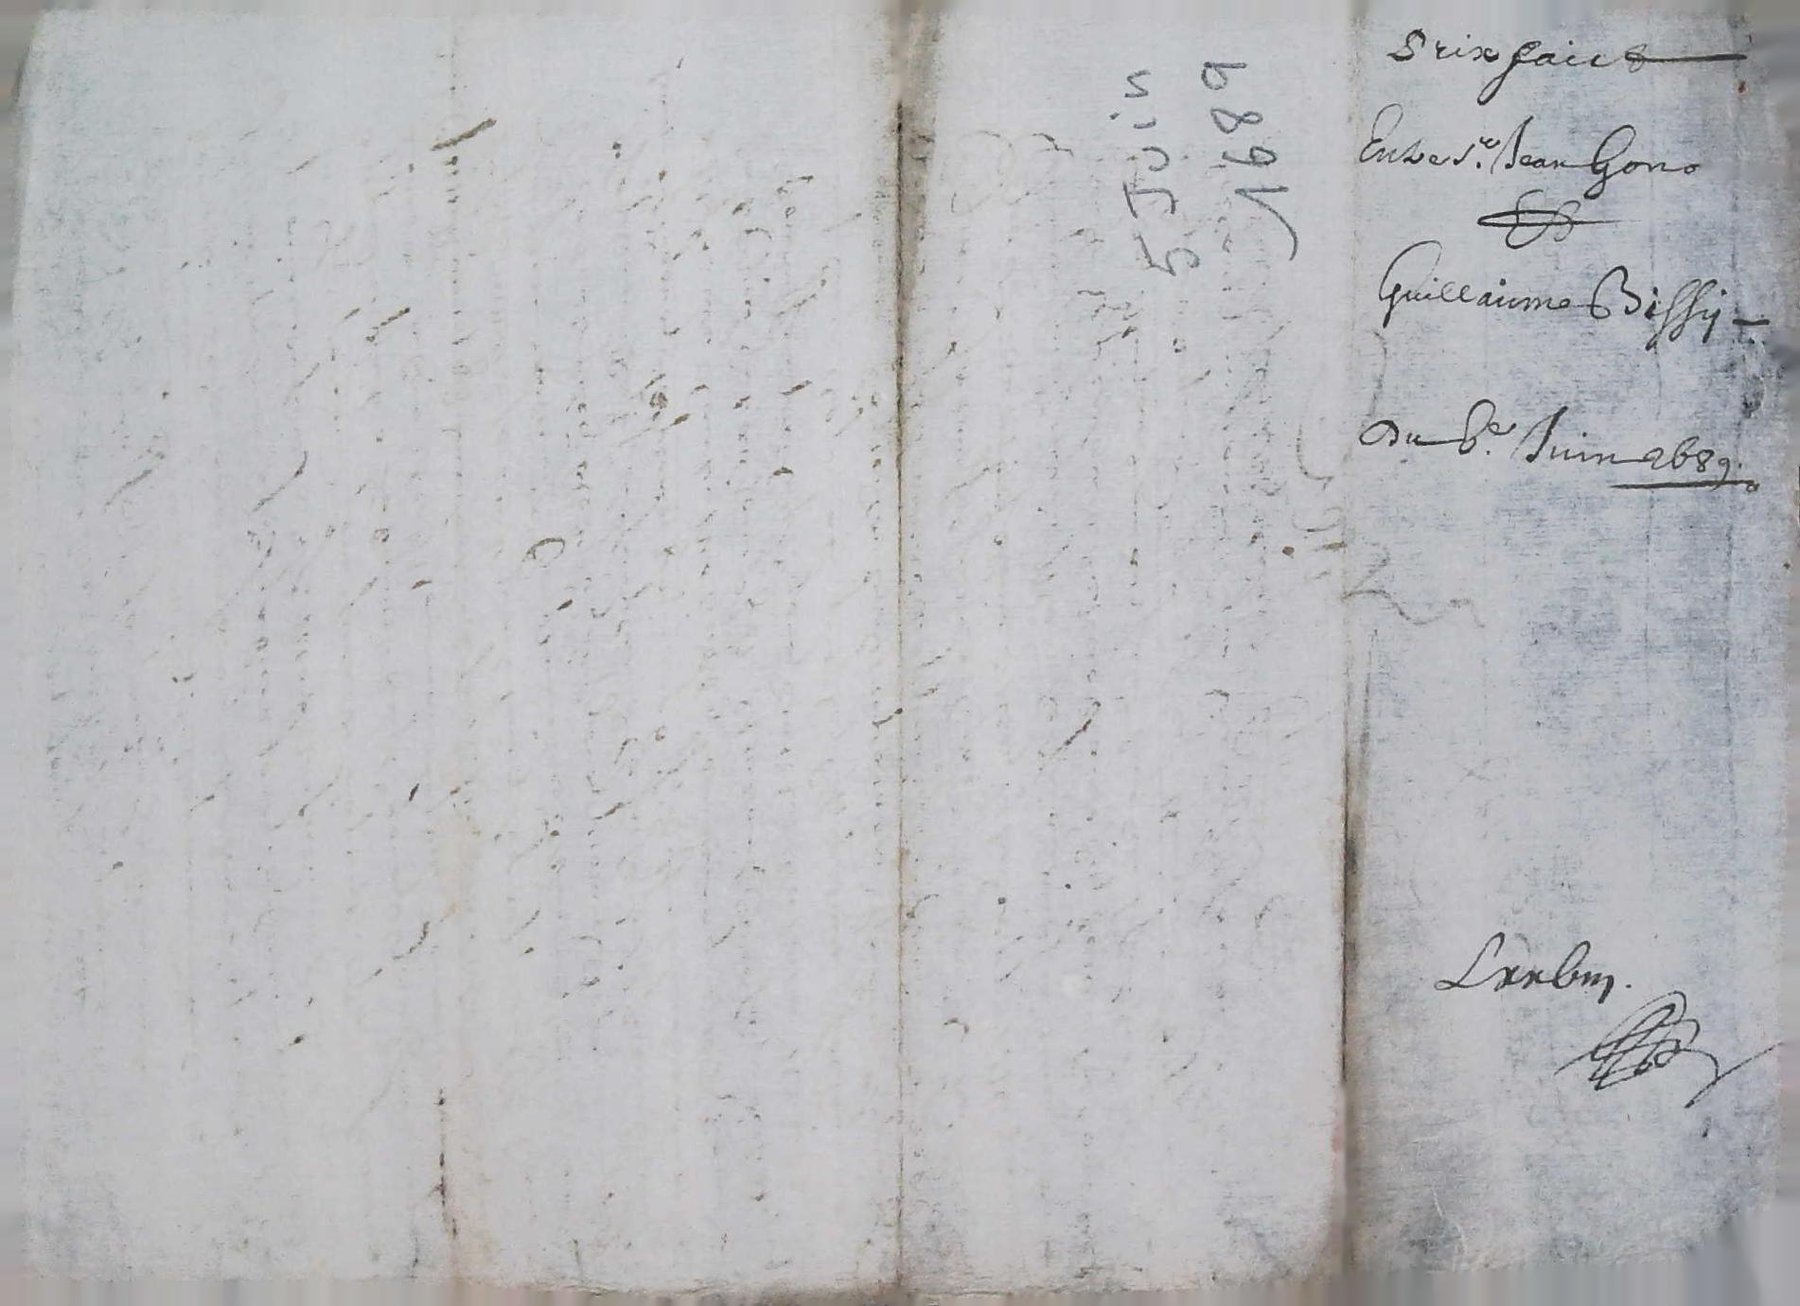 Prixfaict
Entre sr. Jean Gono
&
Guillaume Bissy
Du 6e. Juin 1689.
5 Juin
1689